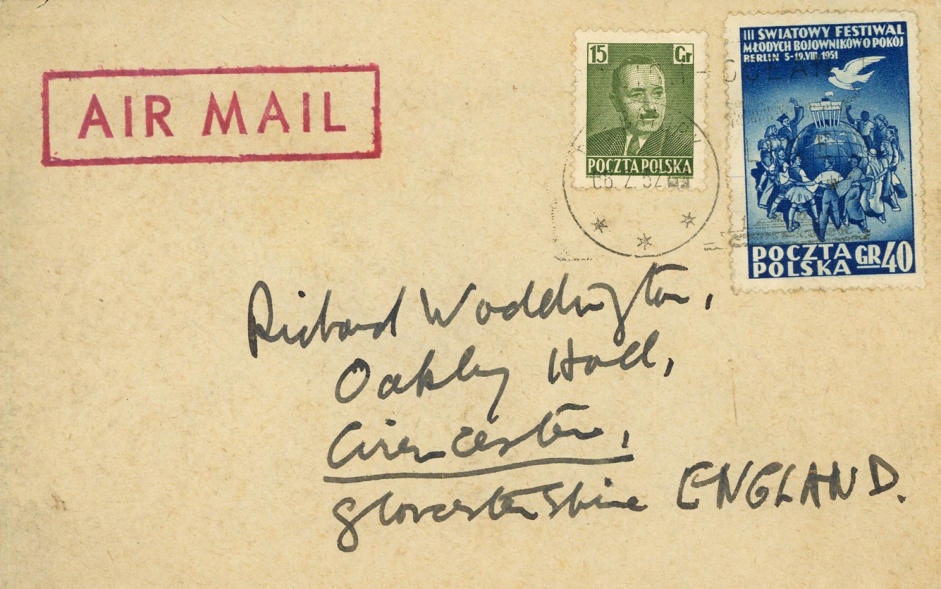 AIR MAIL
15 Gr
POCZTA POLSKA
III ŚWIATOWY FESTIWAL
MŁODYCH BOJOWNIKÓW O POKÓJ
BERLIN 5-19.VIII.1951
POCZTA
POLSKA GR 40
Richard Waddington,
Oakley Hall,
Cirencester,
Gloucestershire ENGLAND.